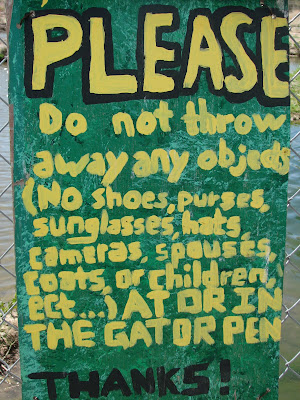 PLEASE
Do not throw
away any objects
(NO shoes, purses,
sunglasses, hats,
cameras, spouses,
coats, or children,
ect...) AT OR IN
THE GATOR PEN
THANKS!